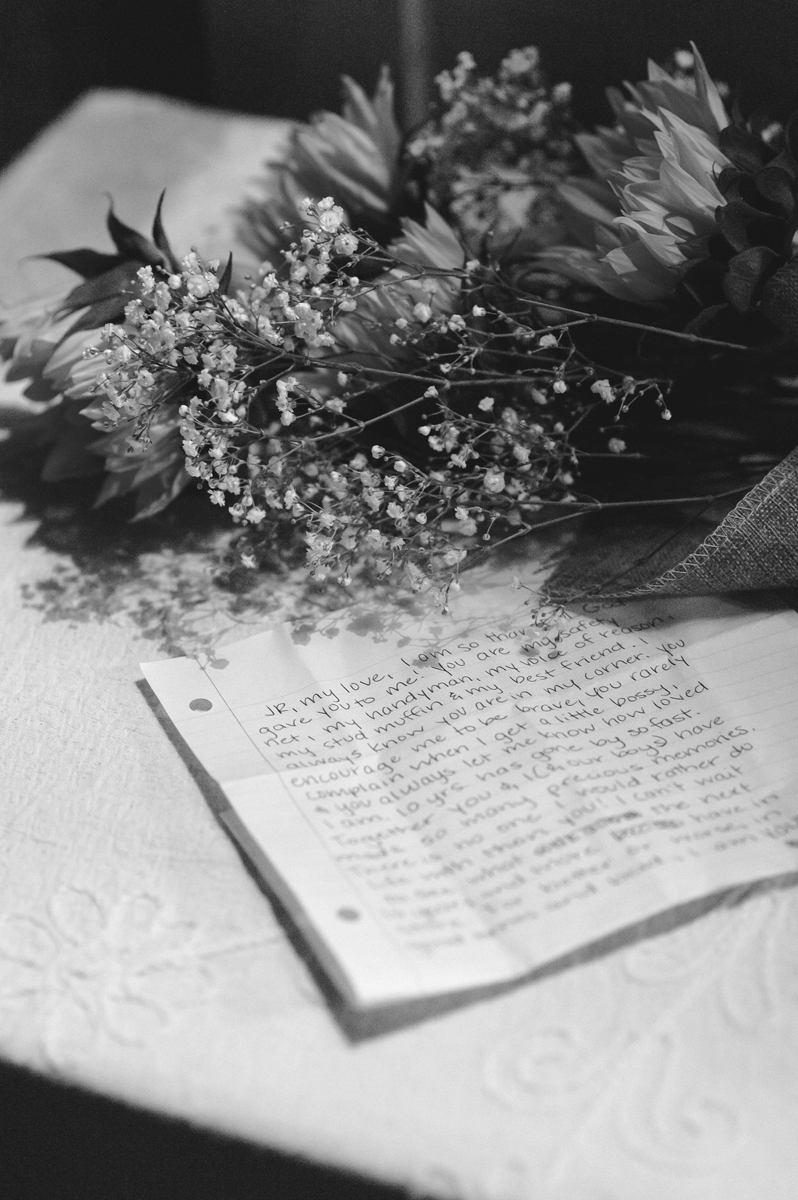 JR, my love, I am so than God
gave you to me. You are my safety
net, my handyman, my voice of reason,
my stud muffin & my best friend. I
always know you are in my corner. you
encourage me to be brave, you rarely
complain when I get a little bossy,
& you always let me know how loved
I am. 10 yrs has gone by so fast.
Together you & I (& our boys) have
made so many precious memories.
There is no one I would rather do
life with than you! I can't wait
to see what the next
10 years and more have in
store. For better or worse, in
good times and bad, I am